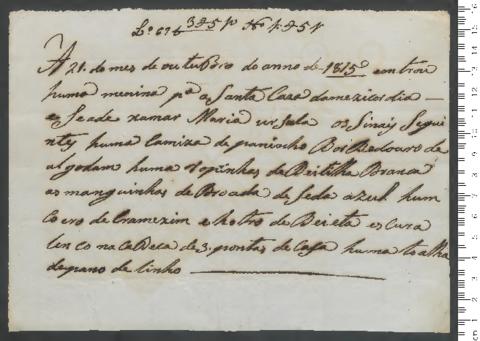 A 21. do mes de outuBro do anno de 1815 entrou
huma menina pª a Santa Caza damizicordia —
e Seade xamar Maria ursula os Sinais Segui
ntes huma Camiza de paninho BorDedouro de
algodam huma Ropinhas de Beitilha Branca
as manguinhas de Broada de Seda azul hum
Coeiro de Cramezim e hotro de Baieta escura
lenco na caBeca de 3. pontos de Casa huma toalha
de pano de linho